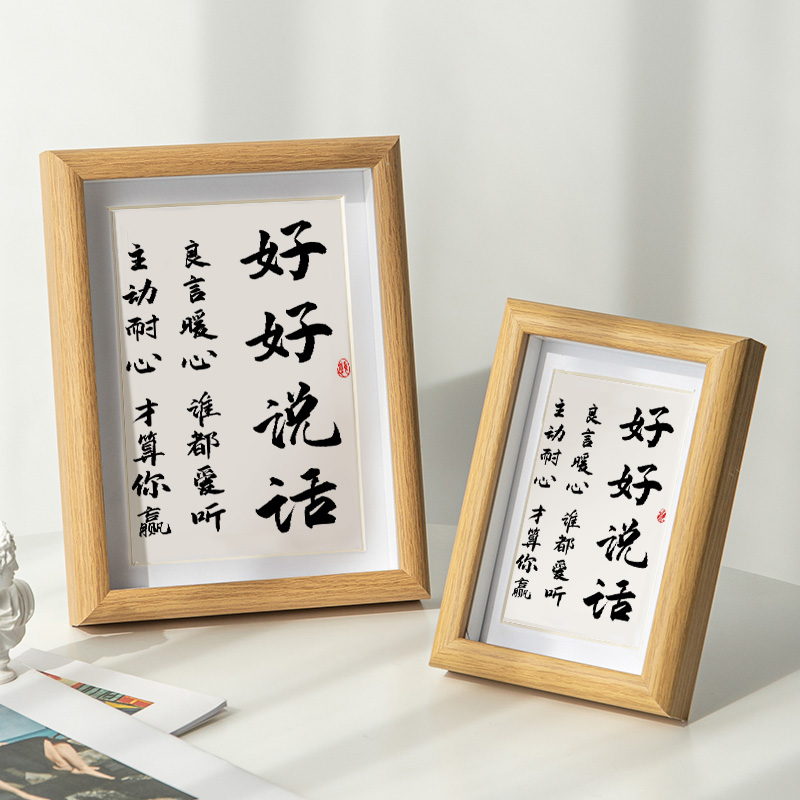 好好说话
良言暖心 谁都爱听
主动耐心 才算你赢
好好说话
良言暖心 谁都爱听
主动耐心 才算你赢